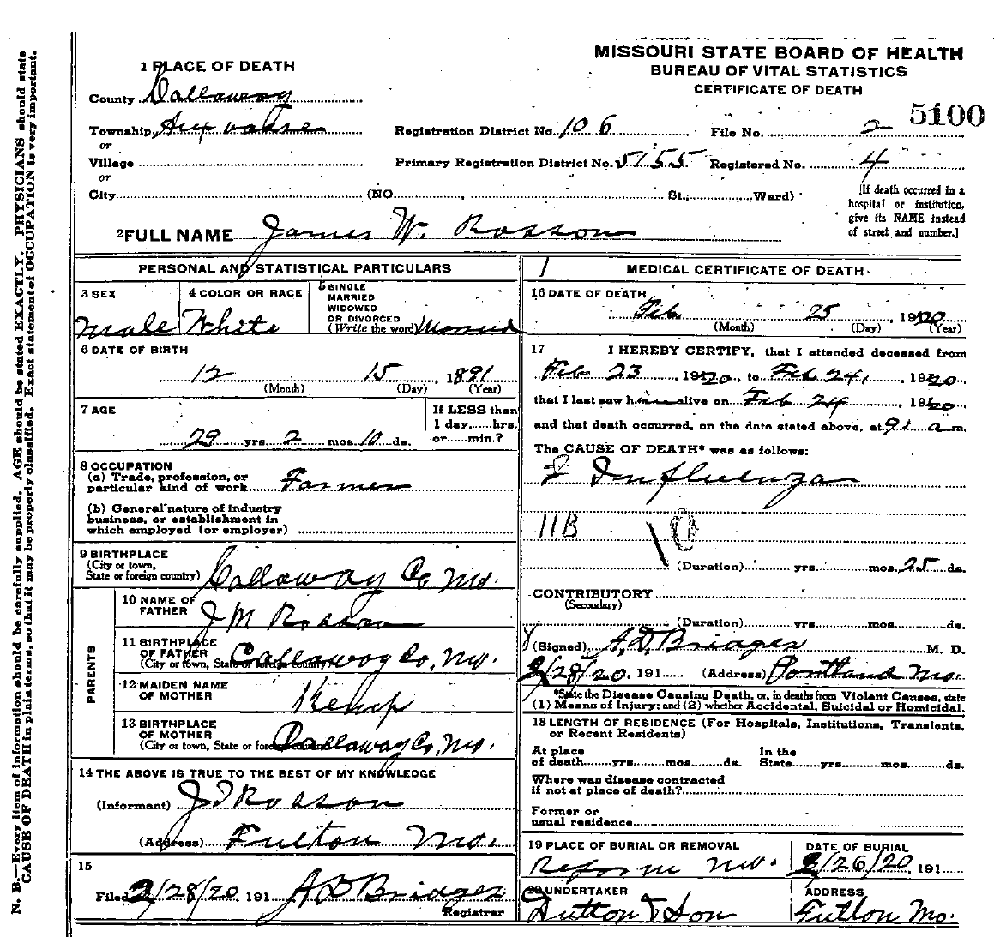 N. B.—Every item of information should be carefully supplied. AGE should be stated EXACTLY. PHYSICIANS should state
CAUSE OF DEATH in plain terms, so that it may be properly classified. Exact statement of OCCUPATION is very important.
MISSOURI STATE BOARD OF HEALTH
BUREAU OF VITAL STATISTICS
CERTIFICATE OF DEATH
5100
1 PLACE OF DEATH
County Callaway
Township
or
Village
or
City (NO. St.; Ward)
Registration District No. 106 File No. 2
Primary Registration District No. 5155 Registered No. 4
[If death occurred in a
hospital or institution,
give its NAME instead
of street and number.]
2 FULL NAME James W. Rosson
PERSONAL AND STATISTICAL PARTICULARS
3 SEX
Male
4 COLOR OR RACE
White
5 SINGLE
MARRIED
WIDOWED
OR DIVORCED
(Write the word) Married
6 DATE OF BIRTH
12 15, 1891
(Month) (Day) (Year)
7 AGE
29 yrs. 2 mos. 10 ds.
If LESS than
1 day,.....hrs.
or.....min.?
8 OCCUPATION
(a) Trade, profession, or
particular kind of work Farmer
(b) General nature of industry
business, or establishment in
which employed (or employer)
9 BIRTHPLACE
(City or town,
State or foreign country) Callaway Co Mo.
PARENTS
10 NAME OF
FATHER J M Rosson
11 BIRTHPLACE
OF FATHER
(City or town, State or foreign country) Callaway Co, Mo.
12 MAIDEN NAME
OF MOTHER Kemp
13 BIRTHPLACE
OF MOTHER
(City or town, State or foreign country) Callaway Co, Mo.
14 THE ABOVE IS TRUE TO THE BEST OF MY KNOWLEDGE
(Informant) Rosson
(Address) Fulton Mo.
15
Filed 2/28/20 191 A D Bridges
Registrar
MEDICAL CERTIFICATE OF DEATH
16 DATE OF DEATH
Feb 25, 1920
(Month) (Day) (Year)
17 I HEREBY CERTIFY, that I attended deceased from
Feb 23, 1920, to Feb 24, 1920
that I last saw him alive on Feb 24, 1920,
and that death occurred, on the date stated above, at 9 a m.
The CAUSE OF DEATH* was as follows:
Influenza
11B
10
(Duration) yrs. mos. 25 ds.
CONTRIBUTORY
(Secondary)
(Duration) yrs. mos. ds.
(Signed) A. D. Bridges M. D.
2/28/20 191 (Address) Portland Mo.
*State the Disease Causing Death, or, in deaths from Violent Causes, state
(1) Means of Injury; and (2) whether Accidental, Suicidal or Homicidal.
18 LENGTH OF RESIDENCE (For Hospitals, Institutions, Transients,
or Recent Residents)
At place
of death yrs. mos. ds.
In the
State yrs. mos. ds.
Where was disease contracted
if not at place of death?
Former or
usual residence
19 PLACE OF BURIAL OR REMOVAL
Reform Mo.
DATE OF BURIAL
2/26/20 191
20 UNDERTAKER
& Son
ADDRESS
Fulton Mo.